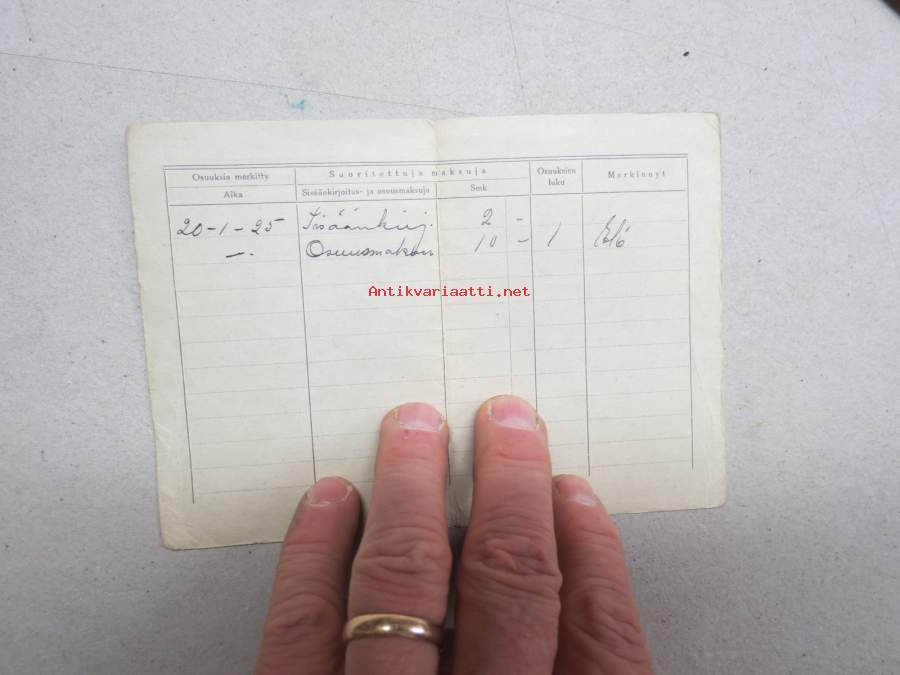 Osuuksia merkitty Suoritettuja maksuja Osuuksien luku Merkinnyt
Aika Sisäänkirjoitus- ja osuusmaksuja Smk
20-1-25 Sisäänkirj. 2 -
—„— Osuusmaksu 10 - 1
Antikvariaatti.net